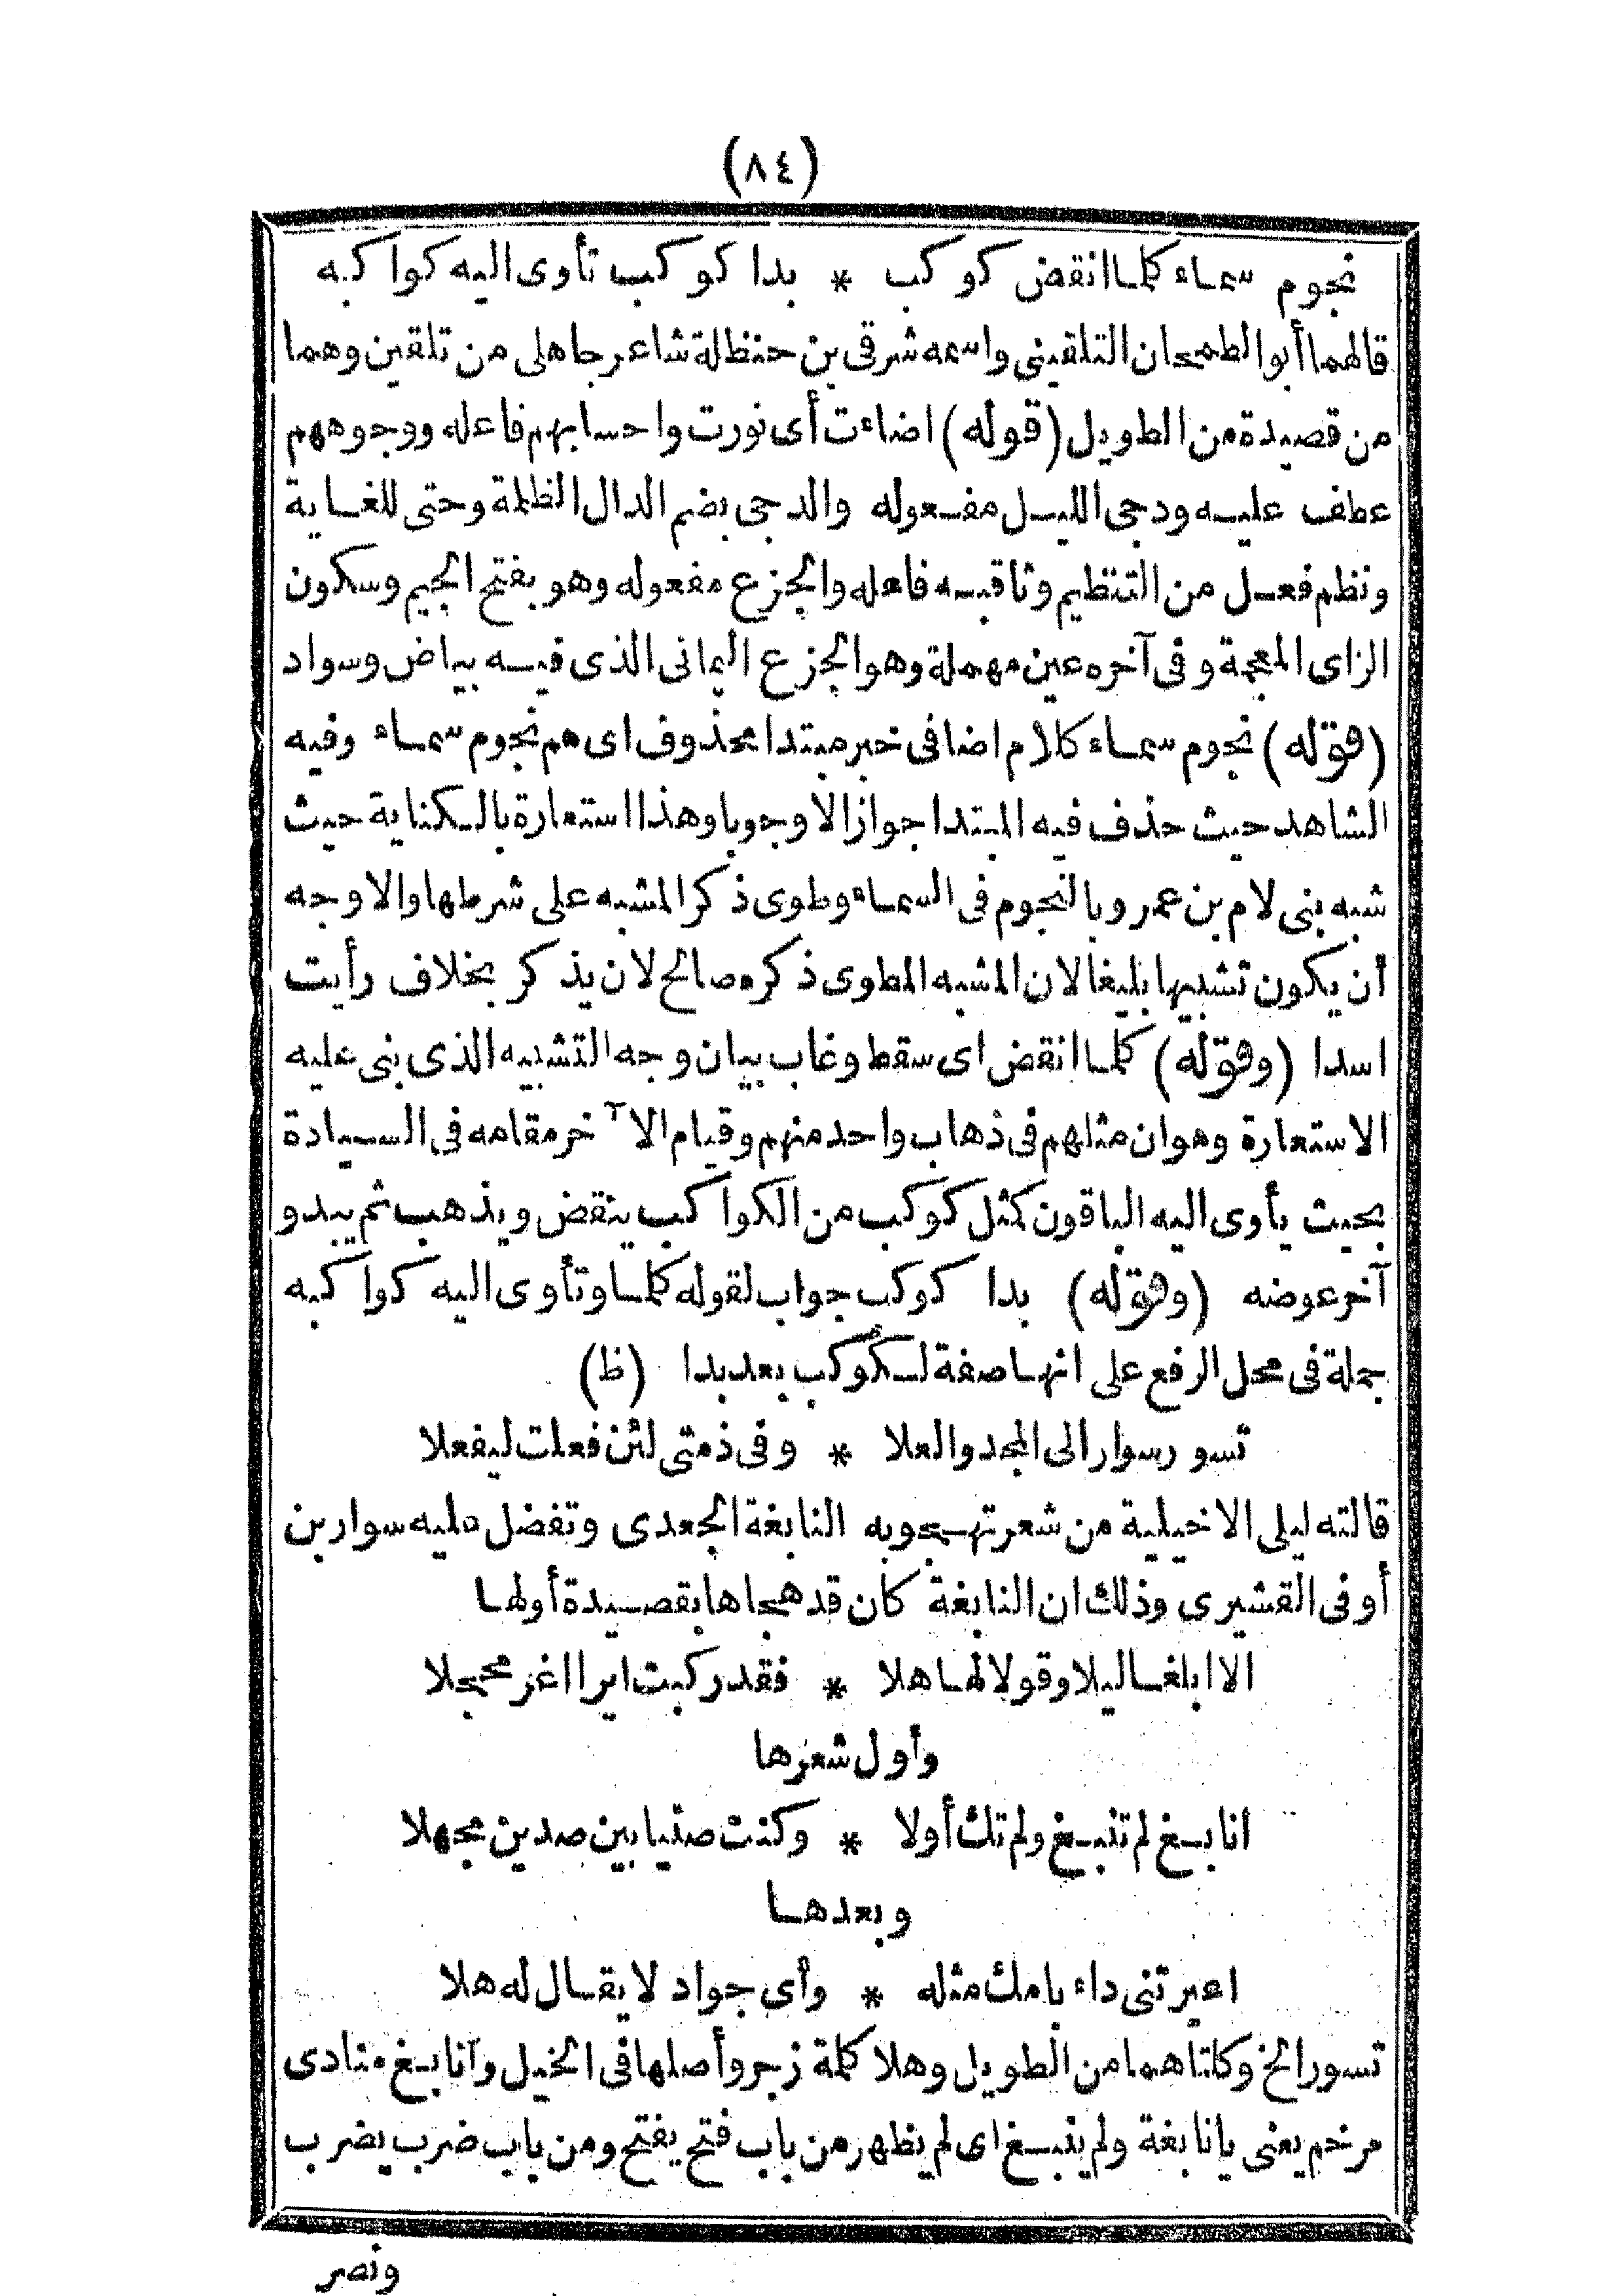 (٨٤)
نجوم سماء كلما انقض كوكب * بدا كوكب تأوى اليه كواكبه
قالهما أبو الطمحان التلقينى واسمه شرقى بن حنظلة شاعر جاهلى من تلقين وهما
من قصيدة من الطويل (قوله) اضاءت أى نورت واحسابهم فاعله ووجوههم
عطف عليه ودجى الليل مفعوله والدجى بضم الدال الظلمة وحتى للغاية
ونظم فعل من التنظيم وثاقبه فاعله والجزع مفعوله وهو بفتح الجيم وسكون
الزاى المعجمة وفى آخره عين مهملة وهو الجزع اليمانى الذى فيه بياض وسواد
(قوله) نجوم سماء كلام اضافى خبر مبتدا محذوف اى هم نجوم سماء وفيه
الشاهد حيث حذف فيه المبتدا جوازا لا وجوبا وهذا استعارة بالكناية حيث
شبه بنى لام بن عمرو بالنجوم فى السماء وطوى ذكر المشبه على شرطها والاوجه
أن يكون تشبيها بليغا لان المشبه المطوى ذكره صالح لان يذكر بخلاف رأيت
اسدا (وقوله) كلما انقض اى سقط وغاب بيان وجه التشبيه الذى بنى عليه
الاستعارة وهو ان مثلهم فى ذهاب واحد منهم وقيام الآخر مقامه فى السيادة
بحيث يأوى اليه الباقون كمثل كوكب من الكواكب ينقض ويذهب ثم يبدو
آخر عوضه (وقوله) بدا كوكب جواب لقوله كلما وتأوى اليه كواكبه
جملة فى محل الرفع على انها صفة لكوكب بعد بدا (ظ)
تسور سوار الى المجد والعلا * وفى ذمتى لئن فعلت ليفعلا
قالته ليلى الاخيلية من شعر تهجو به النابغة الجعدى وتفضل عليه سوار بن
أوفى القشيرى وذلك ان النابغة كان قد هجاها بقصيدة أولها
الا ابلغا ليلا وقولا لها هلا * فقد ركبت ايرا اغز محجلا
وأول شعرها
انابغ لم تنبغ ولم تك أولا * وكنت صنيا بين صدين مجهلا
وبعدها
اعيرتنى داء بامك مثله * وأى جواد لا يقال له هلا
تسور الخ وكلتاهما من الطويل وهلا كلمة زجر وأصلها فى الخيل وآنابغ منادى
مرخم يعنى يا نابغة ولم ينبغ اى لم يظهر من باب فتح يفتح ومن باب ضرب يضرب
ونصر